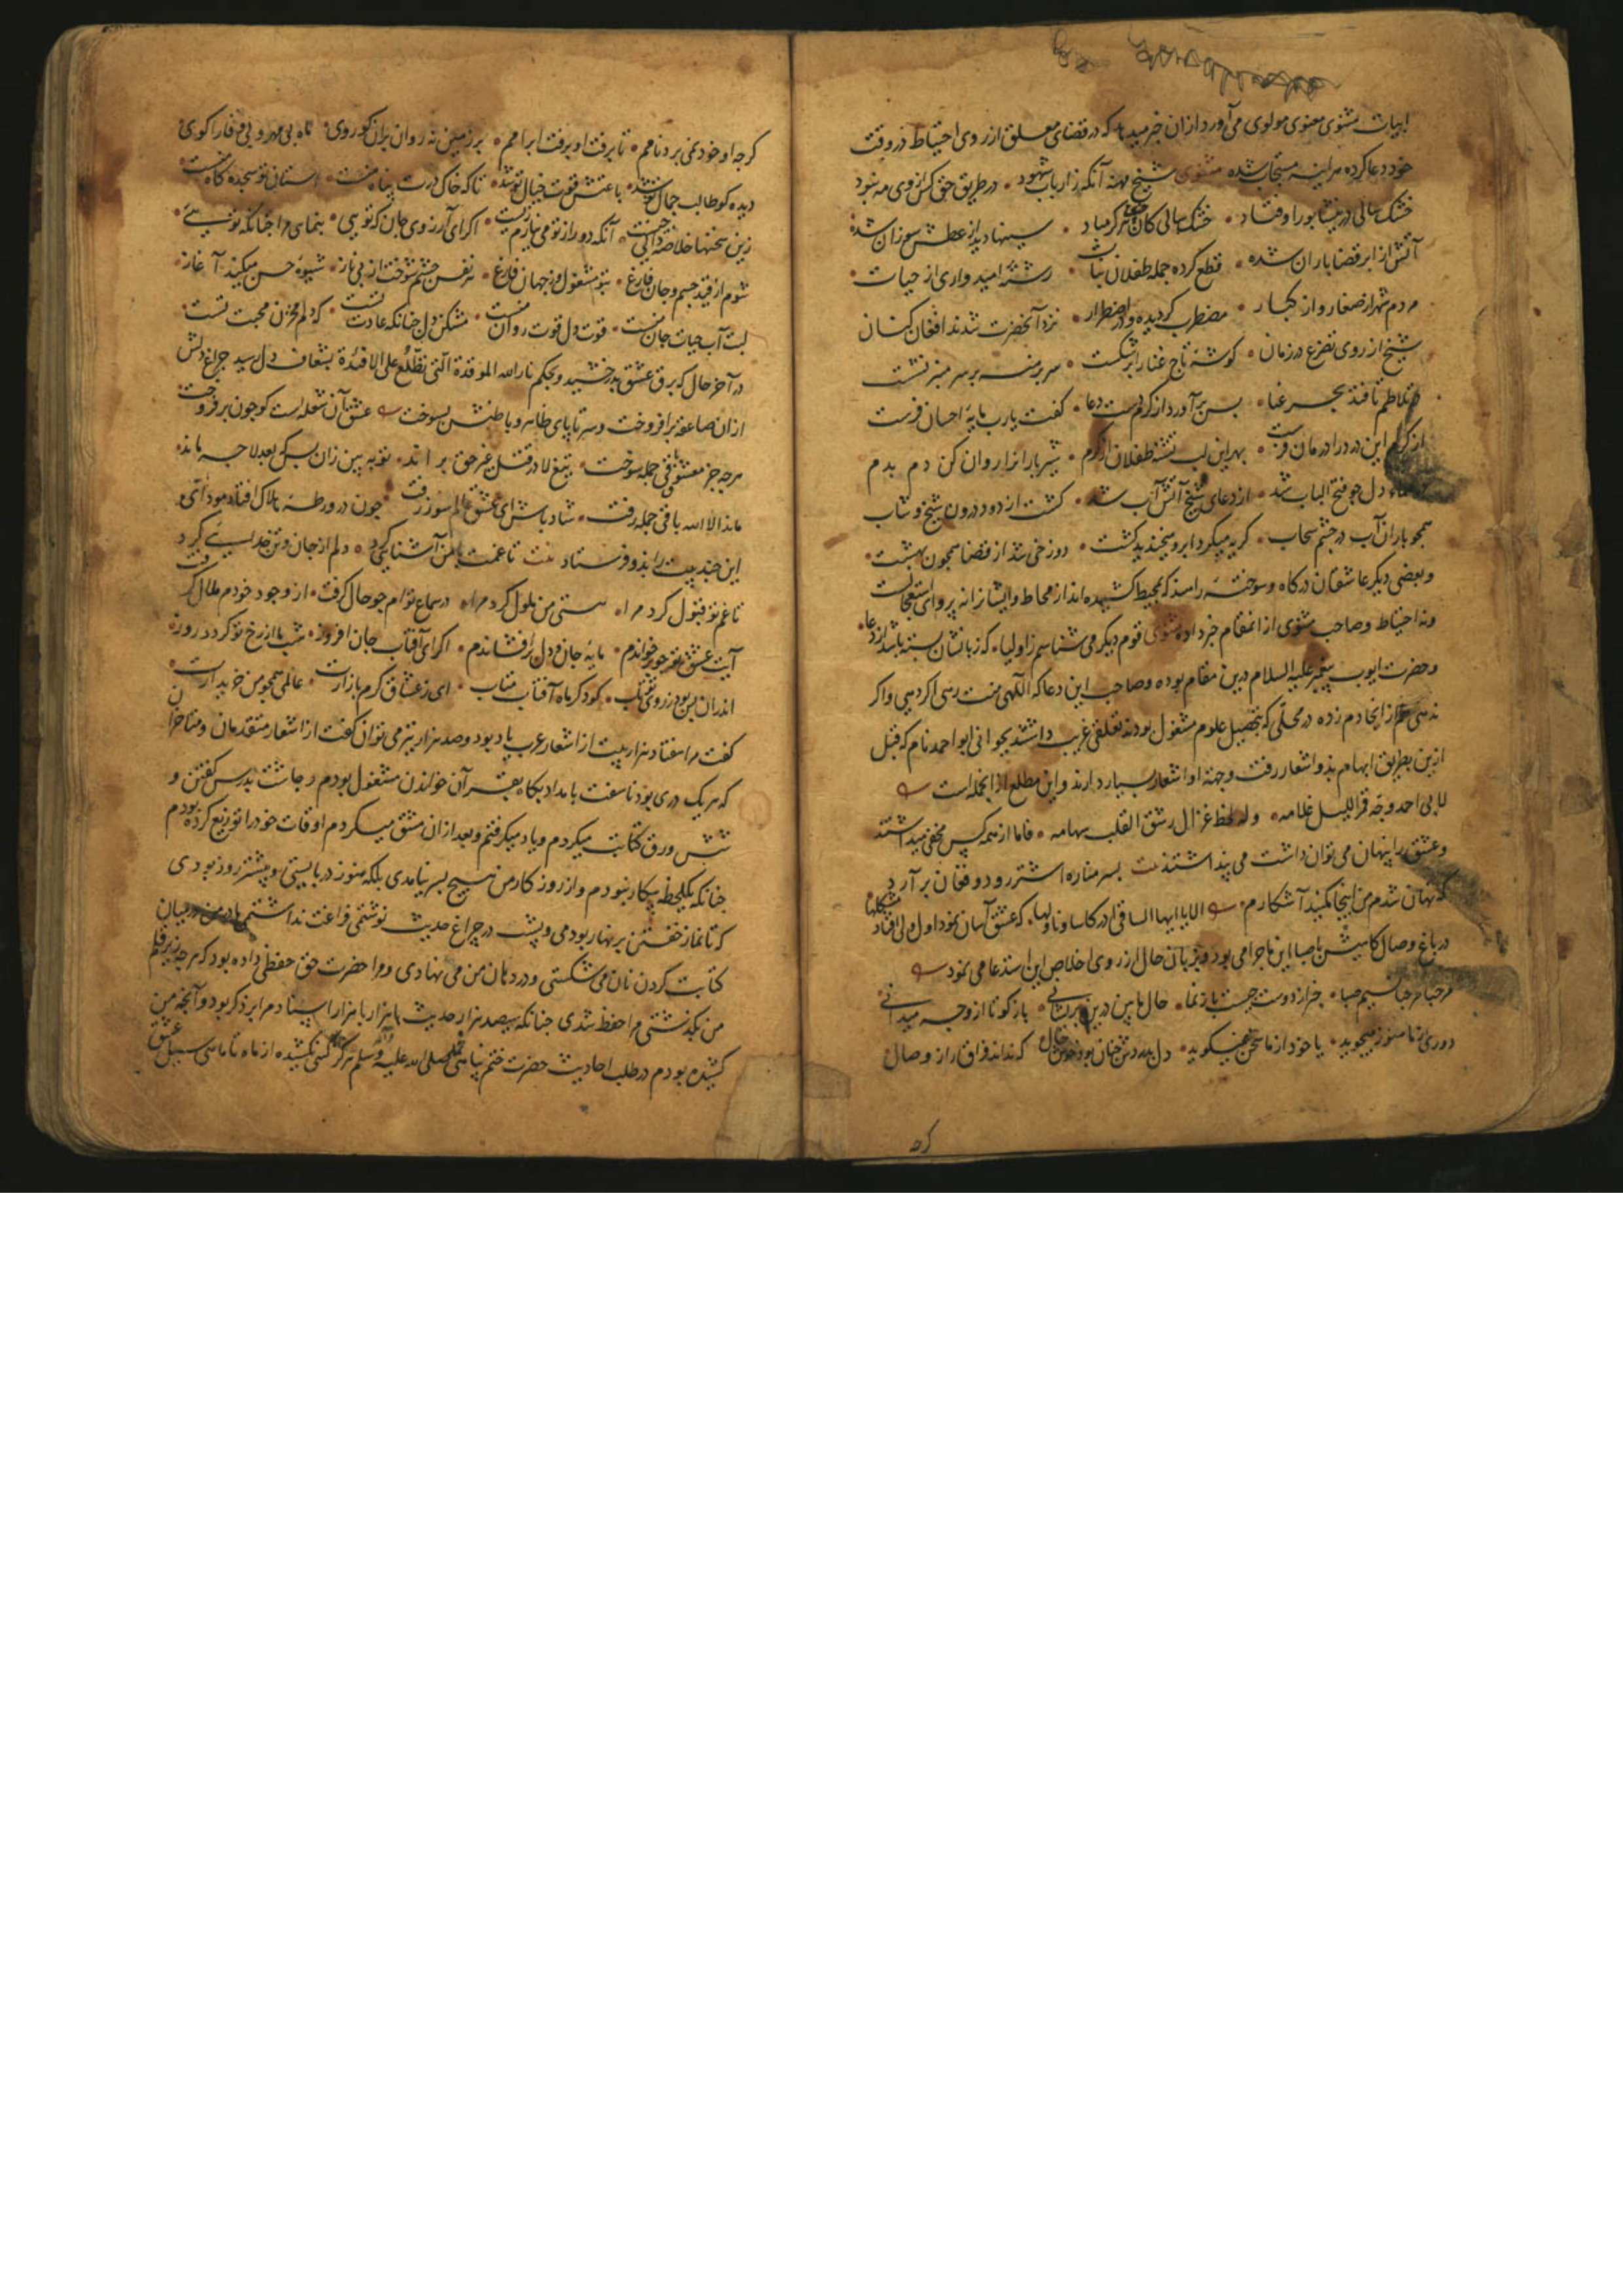 ابیات مثنوی معنوی مولوی می آورد از ان خبر میدهد که در قضای معلق از روی احتیاط در وقت
خود دعا کرده هراینه مستجاب شده مثنوی شیخ مهنه آنکه ز ارباب شهود • در طریق حق کس از وی مه نبود
خشک سالی در نیشابور اوفتاد • خشک سالی کان هرگز مباد • سینها دید از عطش سوزان شده
آتش از ابر قضا باران شده • قطع کرده جمله طفلان نبات • رشته امیدواری از حیات
مردم شهر از صغار و از کبار • مضطرب گردیده و در اضطرار • نزد آنحضرت شدند افغان کنان
شیخ از روی تضرع در زمان • گوشه تاج غنا را بر شکست • سر برهنه بر سر منبر نشست
در تلاطم تا فتد بحر غنا • بس بر آورد از کرم دست دعا • گفت یارب مایه احسان فرست
از کرم این درد را درمان فرست • بهر این لب تشنه طفلان از کرم • شیر باران را روان کن دم بدم
دل چو فتح الباب شد • از دعای شیخ آتش آب شد • گشت از دود درون شیخ و شاب
همچو باران آب در چشم سحاب • گریه میکرد ابر و میخندید کشت • دوزخی شد از قضا همچون بهشت
و بعضی دیگر عاشقان درگاه و سوخته راسند که بمحیط کشیده اند از محاط و ایشانرا نه پروای استعجالست
و نه احتیاط و صاحب مثنوی از انمقام خبر داده مثنوی قوم دیگر می شناسم ز اولیا • که زبانشان بسته باشد از دعا
و حضرت ایوب پیغمبر علیه السلام درین مقام بوده و صاحب این دعا که الهی منت رسی اگر دهی و اگر
ندهی هم از اینجا دم زده در محلی که بتحصیل علوم مشغول بودند تعلقی غریب داشتند بجوانی ابو احمد نام که قبل
ازین بطریق ابهام بدو اشعار رفت و جهة او اشعار بسیار دارند و این مطلع از انجمله است
لابی احمد وجه قمر اللیل غلامه • وله لحظ غزال رشق القلب سهامه • فاما از همه کس مخفی میداشتند
و عشق را پنهان می توان داشت می پنداشتند بیت بسر مناره اشتر رود و فغان برآرد
که نهان شدم من اینجا مکنید آشکارم • الا یا ایها الساقی ادر کاسا و ناولها • که عشق آسان نمود اول ولی افتاد مشکلها
در باغ وصال کابیش با صبا این ماجرا می بود و بزبان حال از روی اخلاص این استدعا می نمود
مرحبا مرحبا نسیم صبا • خبر از دوست چیست باز نما • حال ما بین درین پریشانی • باز گو تا از وجه میدانی
دوری از ما هنوز میجوید • یا خود از ما سخن نمیگوید • دل چنان بود خال که نداند فراق را ز وصال
گرچه او خود نمی برد نامم • تا برفت او برفت آرامم • بر زمین نه روان بران گوروی • ماه بی مهر و بی وفا را گوی
دیده کو طالب جمال تو شد • باعتش قوت خیال تو شد • تا که خاک درت پناه منست • استان تو سجده گاه منست
زین سخنها خلاصه دانی چیست • آنکه دور از تو می نیارم زیست • اگر ای آرزوی جان که تویی • بنمای مرا چنانکه تویی
شوم از قید جسم و جان فارغ • بتو مشغول و ز جهان فارغ • نرگس چشم شوخت از پی ناز • شیوه حسن میکند آغاز
لبت آب حیات جان منست • قوت دل قوت روان منست • مشکن دل چنانکه عادت تست • که دلم مخزن محبت تست
در آخر حال که برق عشق بدرخشید و بحکم نار الله الموقدة الّتی تطّلع علی الافئدة بشغاف دل رسید چراغ دلش
از ان صاعقه برافروخت و سر تا پای ظاهر و باطنش بسوخت عشق آن شعله است کو چون بر فروخت
هرچه جز معشوق باقی جمله سوخت • تیغ لا در قتل غیر حق براند • تو ببین زان پس که بعد لا چه ماند
ماند الا الله باقی جمله رفت • شاد باش ای عشق عالم سوز زفت • چون در ورطه هلاک افتاده بودندی و
این چند بیت را بدو فرستاد بیت تا غمت با من آشنایی کرد • دلم از جان و تن جدایی کرد
تا غم تو قبول کرد مرا • هستی من ملول کرد مرا • در سماع توام چو حال گرفت • از وجود خودم ملال گرفت
آیت عشق تو چو بر خواندم • مایه جان و دل برافشاندم • اگر ای آفتاب جان افروز • شب ما از رخ تو گردد روز
اندران پس بود ز روی تو تاب • گو دگر ماه آفتاب متاب • ای ز عشاق گرم بازارت • عالمی همچو من خریدارت
گفت مرا هفتاد هزار بیت از اشعار عرب یاد بود و صد هزار نیز می توان گفت از اشعار متقدمان و متاخران
که هر یک دری بود ناسفت بامداد پگاه بقرآن خواندن مشغول بودم و چاشت بدرس گفتن و
شش ورق کتابت میکردم و یاد میگرفتم و بعد از ان مشق میکردم اوقات خود را توزیع کرده بودم
چنانکه یک لحظه بیکار نبودم و از روزگار من هیچ بسر نیامدی بلکه هنوز دربایستی و بیشتر روز بودی
که تا نماز خفتن بر نهار بودمی و بشب در چراغ حدیث نوشتمی فراغت نداشتمی مادر من در میان
کتابت کردن نان می شکستی و در دهان من می نهادی و مرا حضرت حق حفظی داده بود که هرچه زیر قلم
من بگذشتی مرا حفظ شدی چنانکه سیصد هزار حدیث با هزار بار هزار اسناد مرا بر ذکر بود و آنچه من
کشیده بودم در طلب احادیث حضرت ختم پناهی صلی الله علیه و آله وسلم هرگز کسی نکشیده از ماه تا ماهی سبیل عشق